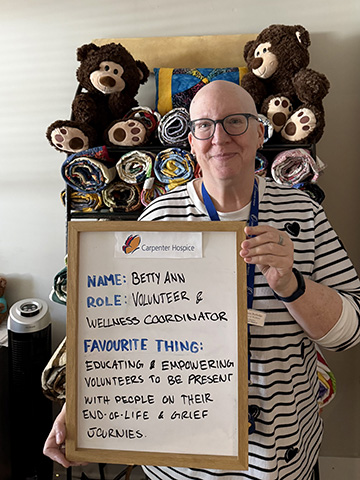 Carpenter Hospice
NAME: BETTY ANN
ROLE: VOLUNTEER &
WELLNESS COORDINATOR
FAVOURITE THING:
EDUCATING & EMPOWERING
VOLUNTEERS TO BE PRESENT
WITH PEOPLE ON THEIR
END-OF-LIFE & GRIEF
JOURNIES.